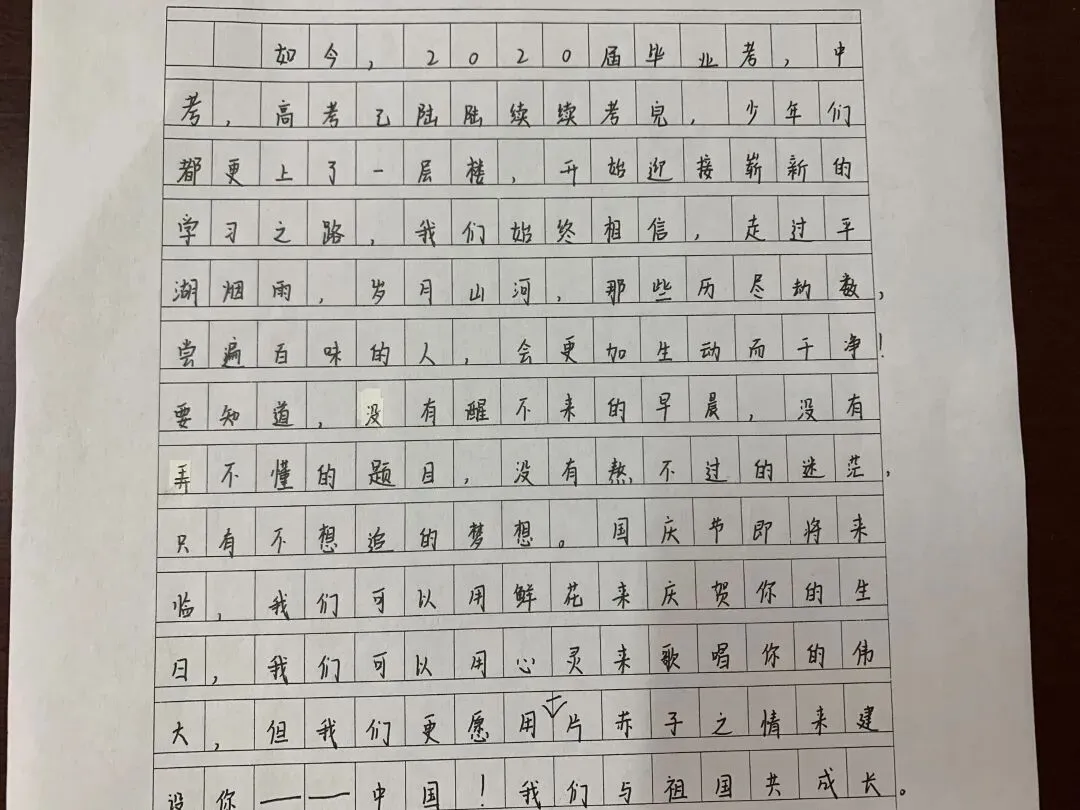 如今,2020届毕业考,中
考,高考已陆陆续续考完,少年们
都更上了一层楼,开始迎接崭新的
学习之路,我们始终相信,走过平
湖烟雨,岁月山河,那些历尽劫数,
尝遍百味的人,会更加生动而干净!
要知道,没有醒不来的早晨,没有
弄不懂的题目,没有熬不过的迷茫,
只有不想追的梦想。国庆节即将来
临,我们可以用鲜花来庆贺你的生
日,我们可以用心灵来歌唱你的伟
大,但我们更愿用一片赤子之情来建
设你——中国!我们与祖国共成长。